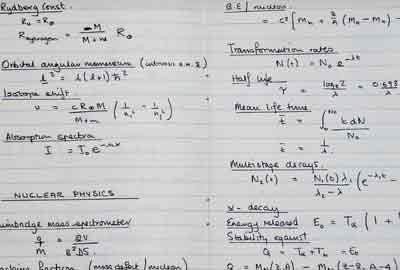 Rydberg Const.
R₀ = R∞
R hydrogen = M / M + m R∞
Orbital angular momentum
l² = l(l+1)ħ²
Isotope shift.
ν = cR∞M / M+m (1/n₁² - 1/n₂²)
Absorption spectra
I = I₀e
NUCLEAR PHYSICS
mass spectrometer
q/M = 2V / B²DS
fraction (mass defect / nucleon)
B.E / nucleon
= c² [Mₙ + (Mₕ - Mₙ) -
Transformation rates
N(t) = N₀ e^-λt
Half life
τ = log_e 2 / λ = 0.693 / λ
Mean life time
t̄ = ∫ t dN / N₀
t̄ = 1/λ
Multistage decays.
N₂(t) = N₁(0) λ₁ / λ₂ - λ₁ (e^-λ₁t -
α - decay
Energy released E₀ = Tα (1 +
Stability against
Q = Tα + T = E₀
Q = M (Z, A) - M (Z-2, A-4)